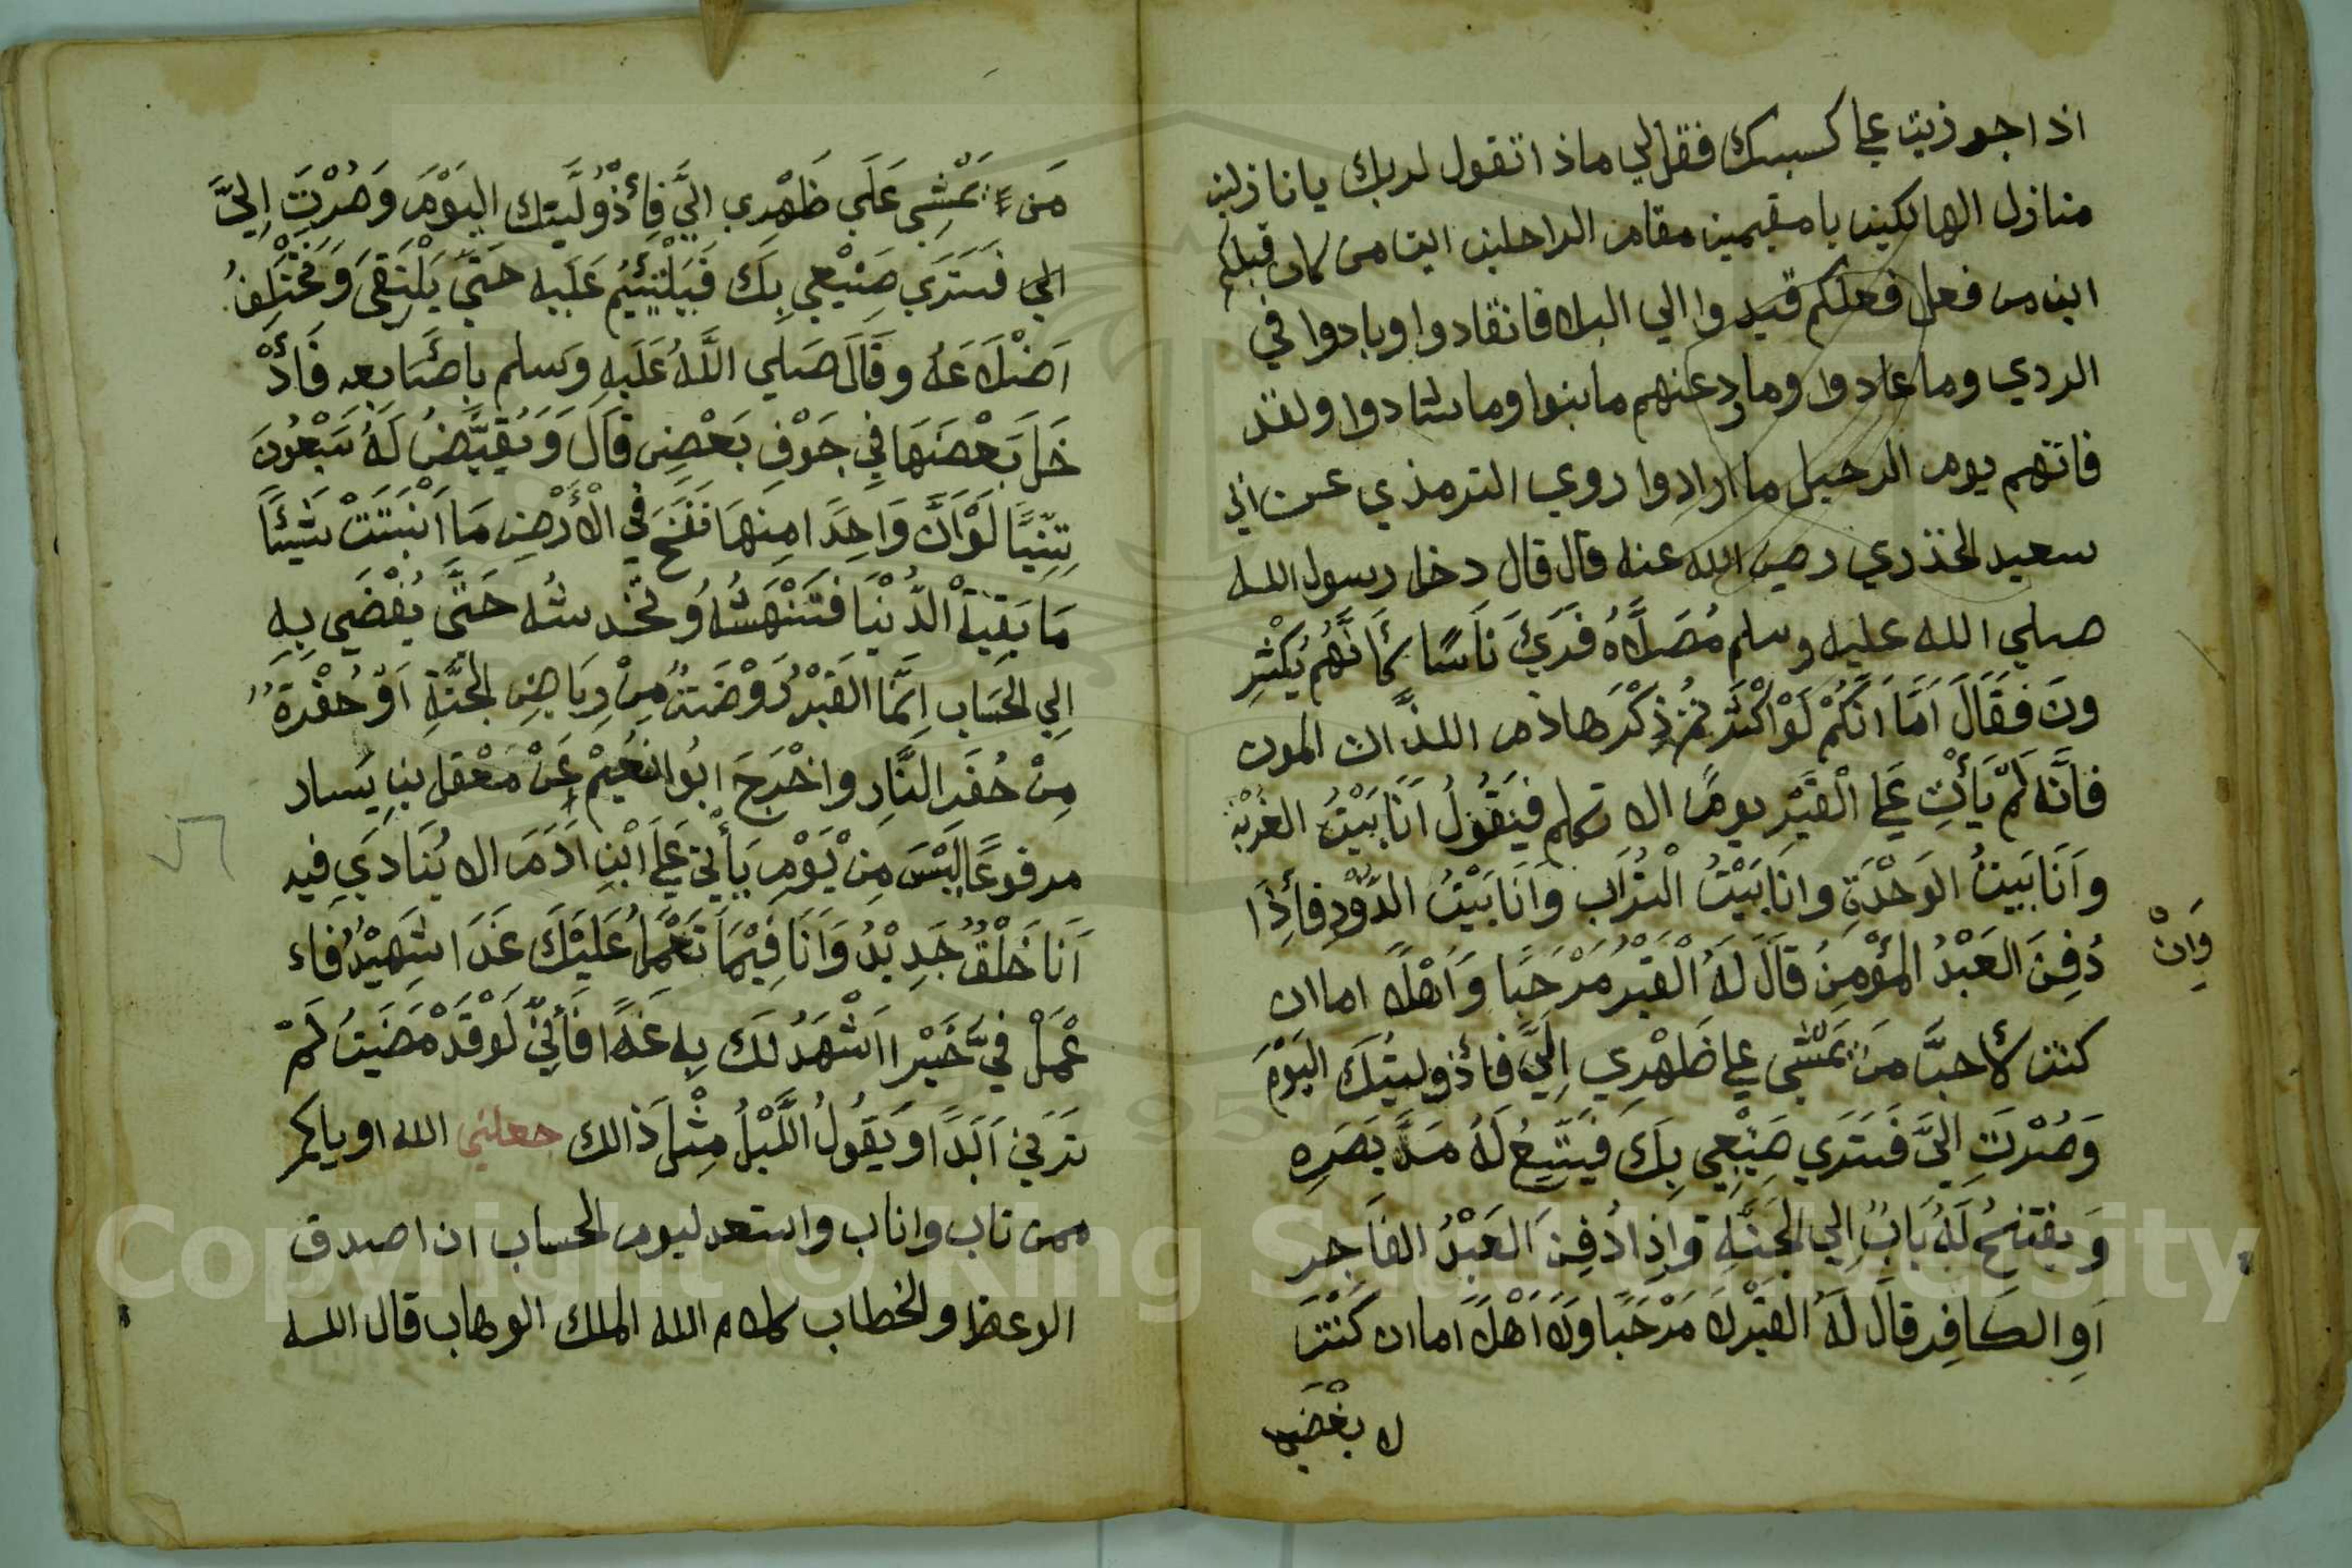 اذا جوزيت على كسبك فقل لي ماذا تقول لربك يا نازلين
منازل الهالكين يا مقيمين مقام الراحلين اين من كان قبلكم
اين من فعل فعلكم قيدوا الي البلا فانقادوا وبادوا في
الردي وما عادوا وما رد عنهم ما بنوا وما شادوا ولقد
فاتهم يوم الرحيل ما ارادوا روي الترمذي عن ابي
سعيد الخذري رضي الله عنه قال قال دخل رسول الله
صلي الله عليه وسلم مُصَلَّاهُ فَرَئَ نَاسًا كَأَنَّهُمْ يُكْثِرِ
ونَ فَقَالَ اَمَّا اَنَّكُمْ لَوْ اَكْثَرْتُمْ ذِكْرَ هاذم اللذّات الموت
فَاَنَّهُ لَمْ يَأْتِ عَلى الْقَبْرِ يومًا الا تكلم فَيَقُولُ اَنَا بَيْتُ الغُرْبَة
وَاَنَا بَيتُ الوَحْدَةِ وانَا بَيْتُ الْتُرَابِ وَاَنَا بَيْتُ الدُّوْدِ فَأِذَا
دُفِنَ العَبْدُ المؤْمِنُ قَالَ لَهُ الْقَبْرُ مَرْحَبًا وَاَهْلًا اما ان
وَاِنْ
كنت لأحبَّ مَن يَمْشِي على ظَهْرِي اِلَيَّ فَأذ وليتُكَ اليَوْمَ
وَصُرْتَ اِلَيَّ فَسَتَرَي صَنِيْعِي بِكَ فَيَتَّسِعُ لَهُ مَدَّ بَصَرِهِ
وَيفتحُ لَهُ بَابٌ اِلي الجَنَّةِ وَاِذَا دُفِنَ العَبْدُ الفَاجر
اَوِ الكَافِر قَالَ لَهُ القَبْر لَا مَرْحَبًا وَلَا اَهْلًا اَما ان كُنْتَ
لا بغْضَ
مَن يَمْشِي عَلَي ظَهْرِي اليَّ فَأذْ وُلِّيتك اليَوْمَ وَصُرْتَ اِليَّ
الي فَسَتَرَي صَنِيْعِي بِكَ فَيَلْتَئِمُ عَلَيه حَتَّي يَلْتَقِيَ وَتَخْتَلِفُ
اَضْلَاعَهُ وقَالَ صَلي اللَّهُ عَلَيهِ وَسلم بِأَصَابِعِهِ فَأَدْ
خَلَ بَعْضَهَا فِي جَوْفِ بَعْضٍ قَالَ وَيُقَيَّضُ لَهُ سَبْعُونَ
تِنِّيْنًا لَوْ اَنَّ وَاحِدًا مِنهَا نَفَخَ فِي الْأَرْضِ مَا اَنْبَتَتْ شَيْئًا
مَا بَقِيَةْ الدُّنْيَا فَتَنْهَشُهُ وَتَخْدِشُه حَتَّى يُفْضَي بِهِ
اِلي الحِسَاب اِنَّمَا القَبْرُ رَوْضَةٌ مِنْ رِيَاضِ الجَنَّةِ اَوْ حُفْرَةٌ
مِنْ حُفَرِ النَّارِ واخْرَجَ ابُوا نُعَيْمْ عَنْ مَعْقل بنِ يَسار
مرفوعًا لَيْسَ مِنْ يَوْمٍ يَأْتِي عَلى ابْنِ اَدَمَ الا يُنَادَي فيه
اَنَا خَلْقٌ جَدِيْدٌ وَاَنَا فِيْمَا تَعْمَلُ عَلَيْكَ غَدًا شَهِيْدٌ فَاء
عْمَلْ فِيَّ خَيْرًا اَشْهَدُ لَكَ بِهِ غَدًا فَأنِّي لَوْ قَدْ مَضَيتُ لَمْ
تَرَنِي اَبَدًا وَيَقُولُ اللَّيْلُ مِثْلَ ذَالك جعلني الله اوياكمر
ممن تاب واناب واستعد ليوم الحساب ان اصدق
الوعظ والخطاب كلام الله الملك الوهاب قال الله
Copyright © King Saud University
1957